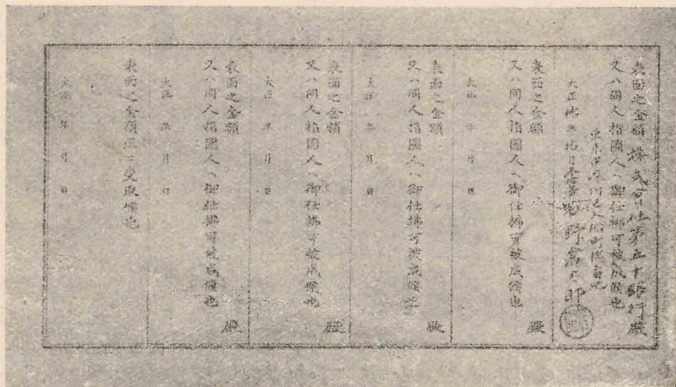 表面之金額株式會社第五十銀行殿
又ハ同人指圖人ヘ御仕拂可被成候也
大正 年 月 日
表面之金額 殿
又ハ同人指圖人ヘ御仕拂可被成候也
大正 年 月 日
表面之金額 殿
又ハ同人指圖人ヘ御仕拂可被成候也
大正 年 月 日
表面之金額 殿
又ハ同人指圖人ヘ御仕拂可被成候也
大正 年 月 日
表面之金額 殿
又ハ同人指圖人ヘ御仕拂可被成候也
大正 年 月 日
表面之金額正ニ受取候也
大正 年 月 日